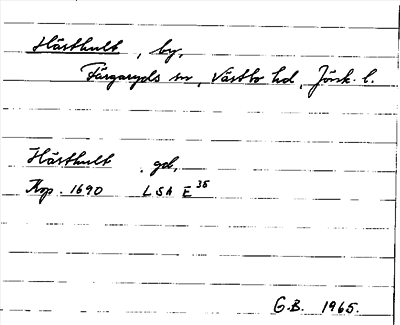 Hästhult, by,
Färgaryds sn, Västbo hd, Jönk. l.
Hästhult gd,
Kop. 1690 LSA E 35
G.B. 1965.